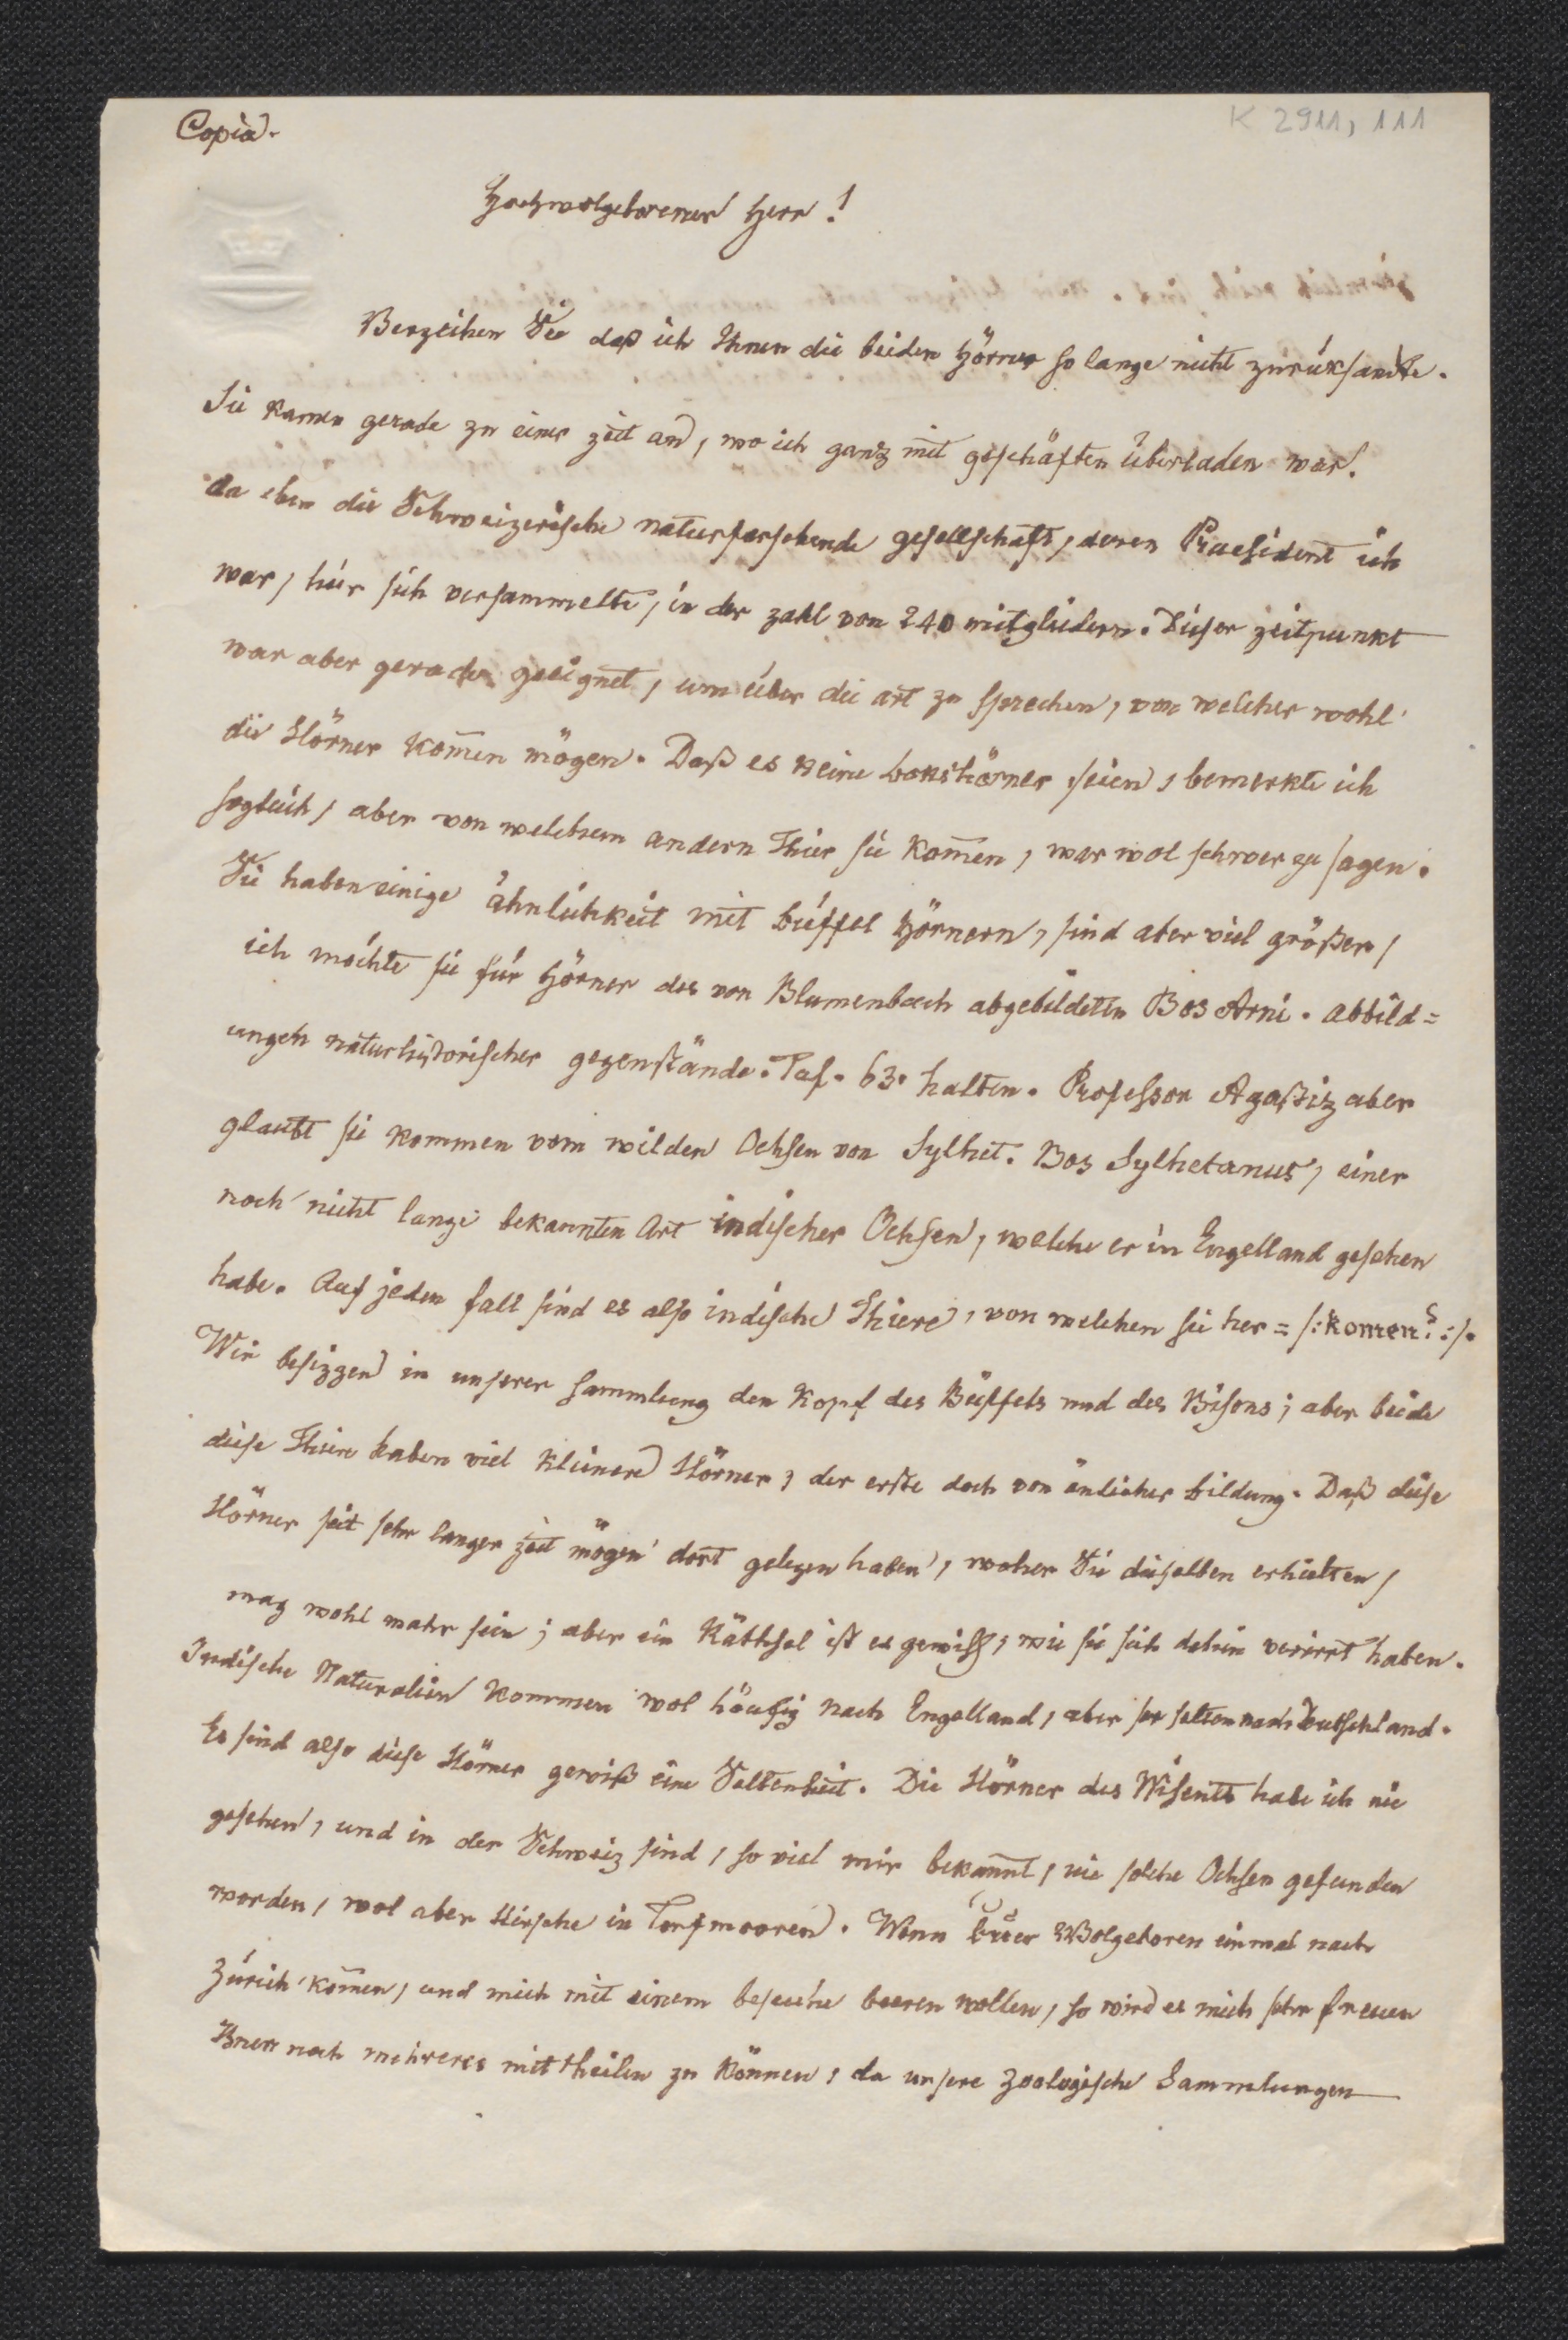 Copia.
K 2911, 111
Hochwolgeborener Herr!
Verzeihen Sie daß ich Ihnen die beiden Hörner so lange nicht zurüksandte.
Sie kamen gerade zu einer zeit an, wo ich ganz mit geschäften überladen war.
da eben die Schweizerische naturforschende gesellschaft, deren Praesident ich
war, hier sich versammelte, in der zahl von 240 mitgliedern. Dieser zeitpunkt
war aber gerade geeignet, um über die art zu sprechen, von welcher wohl
die Hörner kom̄en mögen. Daß es keine bokshörner seien, bemerkte ich
sogleich, aber von welchem andern Thier sie kom̄en, war wol schwer zu sagen.
Sie haben einige ähnlichkeit mit büffel Hörnern, sind aber viel größer,
ich möchte sie für Hörner des von Blumenbach abgebildeten Bos Arni. abbild=
ungen naturhistorischer gegenstände. Taf. 63. halten. Professor Agaßiz aber
glaubt sie kommen vom wilden Ochsen von Sylhet. Bos Sylhetanus, einer
noch nicht lange bekannten Art indischer Ochsen, welche er in Engelland gesehen
habe. Auf jeden fall sind es also indische Thiere, von welchen sie her= /:komen?:/.
Wir besizzen in unserer sammlung den Kopf des Büffels und des Bisons; aber beide
diese Thiere haben viel kleinere Hörner, der erste doch von änlicher bildung. Daß diese
Hörner seit sehr langer zeit mögen dort gelegen haben, woher Sie dieselben erhielten,
mag wohl wahr sein; aber ein Räthsel ist es gewiß, wie sie sich dahin verirrt haben.
Indische Naturalien kommen wol häufig nach Engelland, aber ser selten nach Deutschland.
Es sind also diese Hörner gewiß eine Seltenheit. Die Hörner des Wisents habe ich nie
gesehen, und in der Schweiz sind, so viel mir bekan̄nt, nie solche Ochsen gefunden
worden, wol aber Hirsche in Torfmooren. Wenn Euer Wolgeboren einmal nach
Zürich kom̄en, und mich mit einem besuche beeren wollen, so wird es mich sehr freuen
Ihnen noch mehreres mittheilen zu können, da unsere zoologische Sammlungen